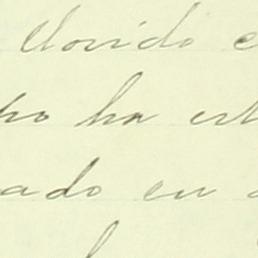 llovido e
ho ha est
ado en